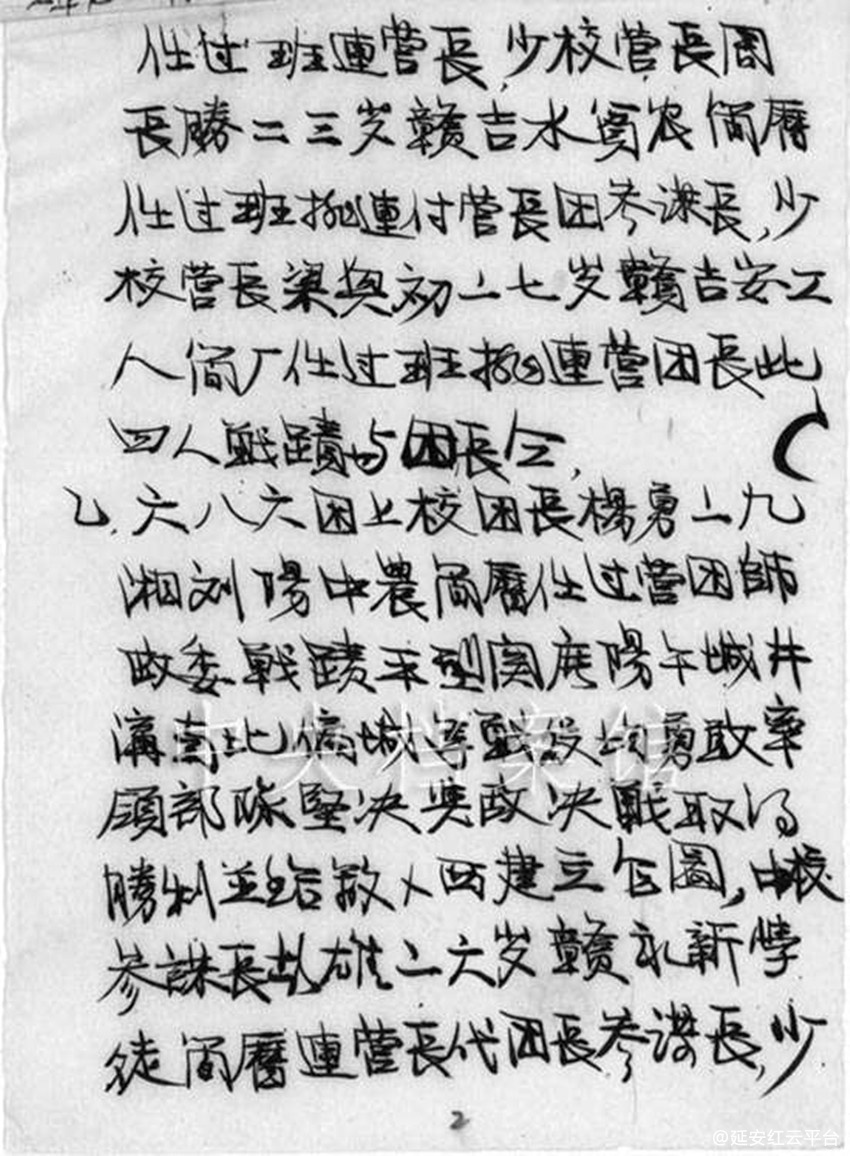 任过班連营長,少校营長周
長勝二三岁贛吉水貧农简曆
任过班排連付营長团参谋長,少
校营長梁興初二七岁贛吉安工
人简厂任过班排連营团長此
四人戰蹟与团長仝,
乙.六八六团上校团長楊勇二九
湘刘陽中農简曆任过营团師
政委戰蹟平型関広陽午城井
溝 城等戰役均勇敢率
領部隊堅决 决戰取得
勝利並给敌人 建立 ,中校
参謀長 雄二六岁贛永新學
徒简曆連营長代团長参谋長,少
2
中央档案馆
@延安红云平台